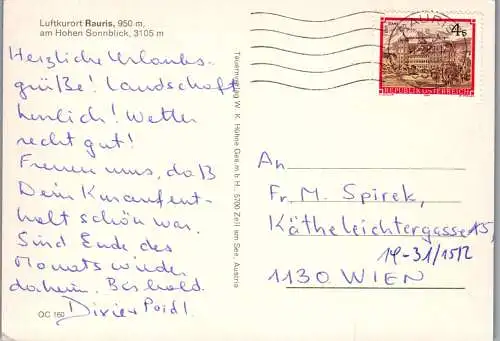 Luftkurort Rauris, 950 m,
am Hohen Sonnblick, 3105 m
Herzliche Urlaubs-
grüße! Landschaft
herrlich! Wetter
recht gut!
Freuen uns, daß
Dein Kuraufent-
halt schön war.
Sind Ende des
Monats wieder
daheim. Bis bald
Poidl.
OC 160
Tauernverlag W. K. Höhne Ges.m.b.H., 5700 Zell am See, Austria
RAURIS
4 S
REPUBLIK ÖSTERREICH
An
Fr. M. Spirek,
Kätheleichtergasse 15,
14-31/1512
1130 WIEN